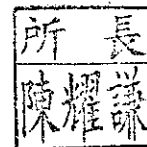 所長
陳耀謙